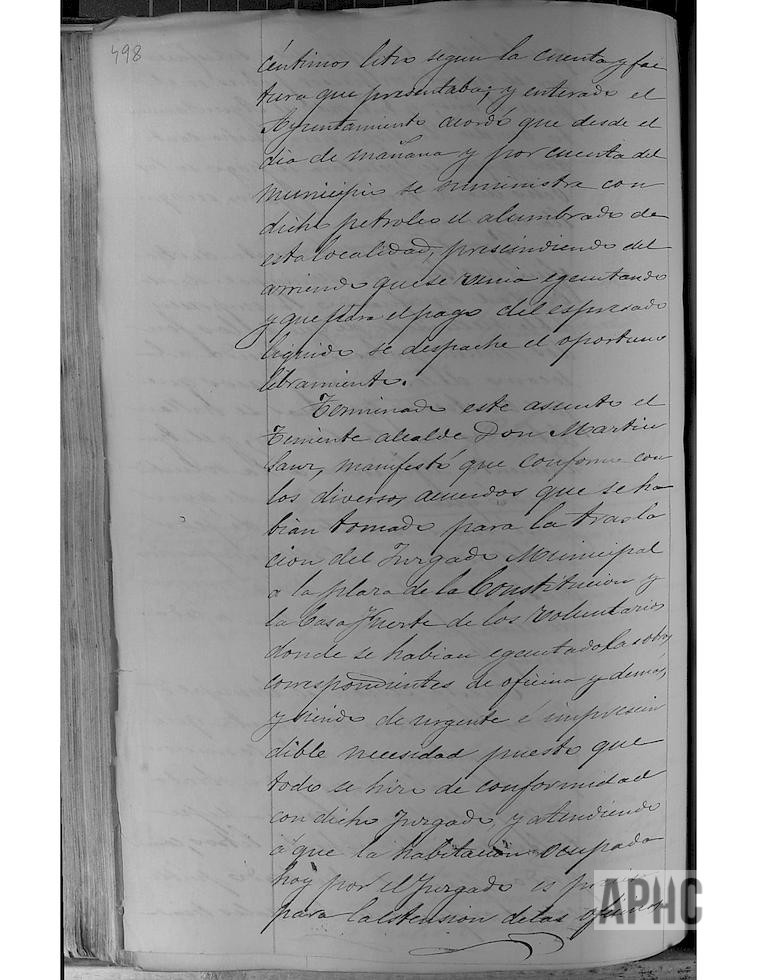 498
céntimos litro segun la cuenta y fac
tura que presentaba; y enterado el
Ayuntamiento acordó que desde el
dia de mañana y por cuenta del
municipio se suministre con
dicho petroleo el alumbrado de
esta localidad, prescindiendo del
arriendo que se venia egecutando
y que para el pago del espresado
liquido se despache el oportuno
libramiento.
Terminado este asunto el
Teniente alcalde Don Martin
manifestó que conforme con
los diversos acuerdos que se ha
bian tomado para la trasla
cion del Juzgado Municipal
a la plaza de la Constitucion y
la Casa fuerte de los voluntarios
donde se habian egecutado las obras
correspondientes de oficina y demas,
y siendo de urgente é imprescin
dible necesidad puesto que
todo se hizo de conformidad
con dicho Juzgado, y atendiendo
á que la habitacion ocupada
hoy por el Juzgado es
para la estension de las oficinas
APHC